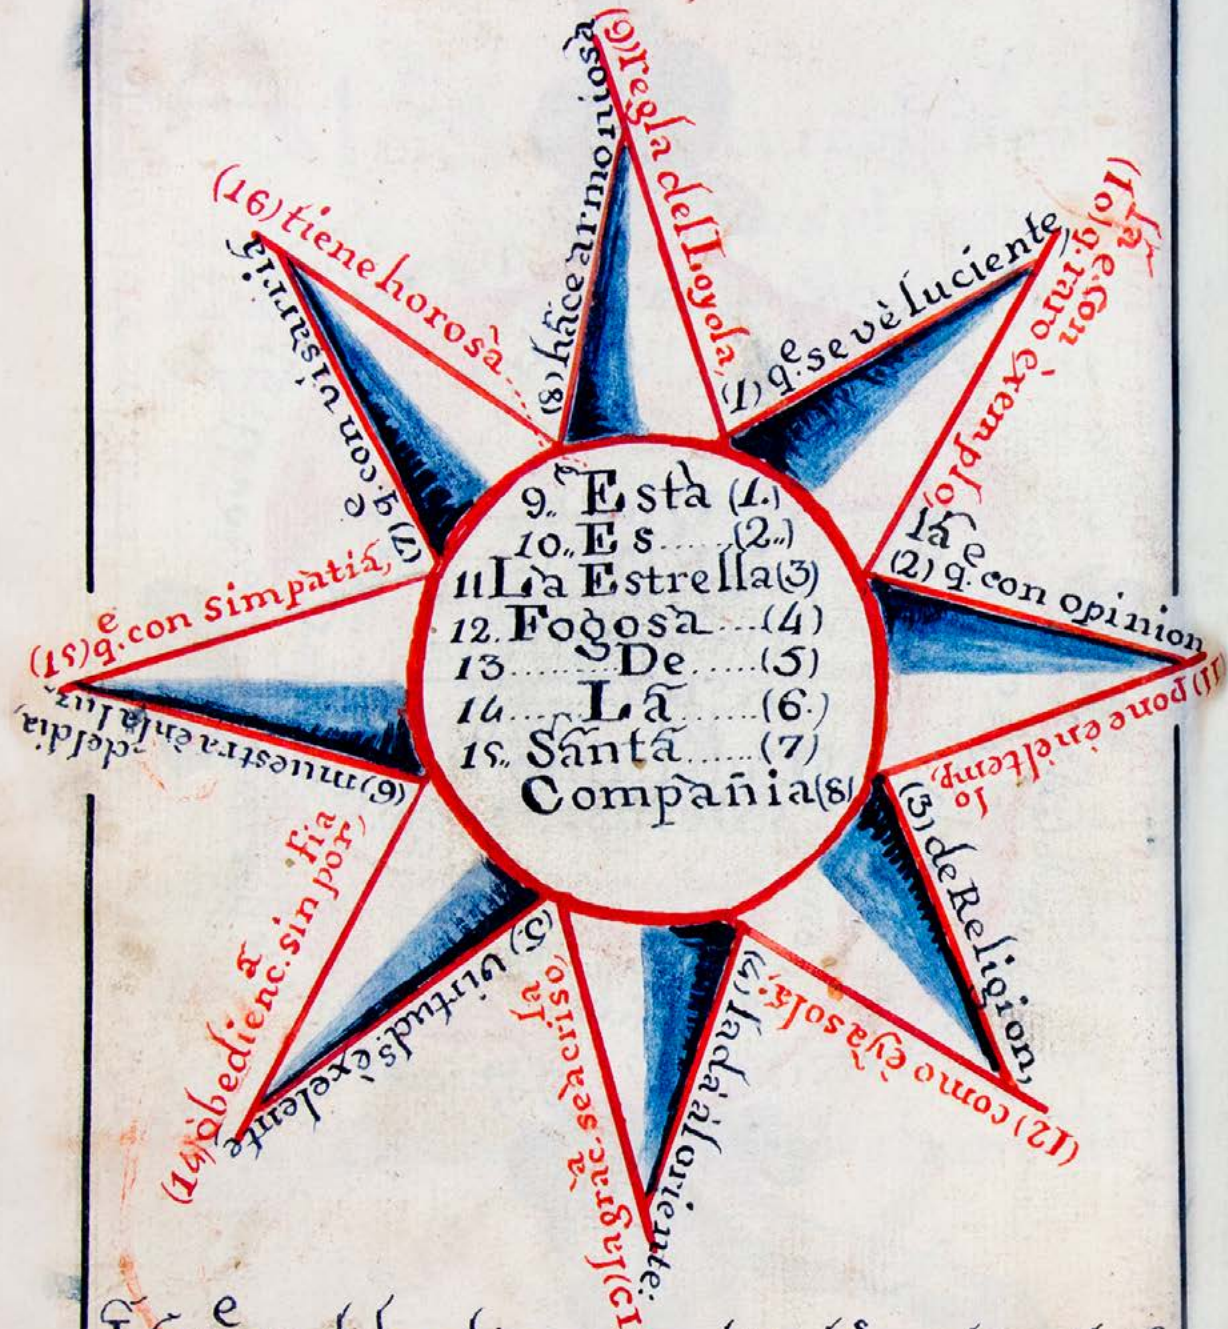 9,, Està (1.)
10,, Es......(2..)
11 Là Estrella (3)
12. Fogosa...(4)
13........De.....(5)
14.....Lã......(6.)
15,, Sãntã......(7)
Compàñia (8)
(1) q.e se vè luciente,
(2) q.e con opinion
lã
(3) de Religion,
(4) la dà àl oriente:
(5.) virtud.s èxelente
(6) muestra èn la luz
del dia,
(7) q.e con visarriã
(8) hãce armoniosa
(9) regla del Loyola,
(10) q. raro èxemplo,
la e. con
(11) pone èn èl temp,
lo
(12) como èya solã;
la grac.à se àcriso,
la
(14) òbedienc.a sin por,
fia
(15) q.e con simpàtiã,
(16) tiene horosà....